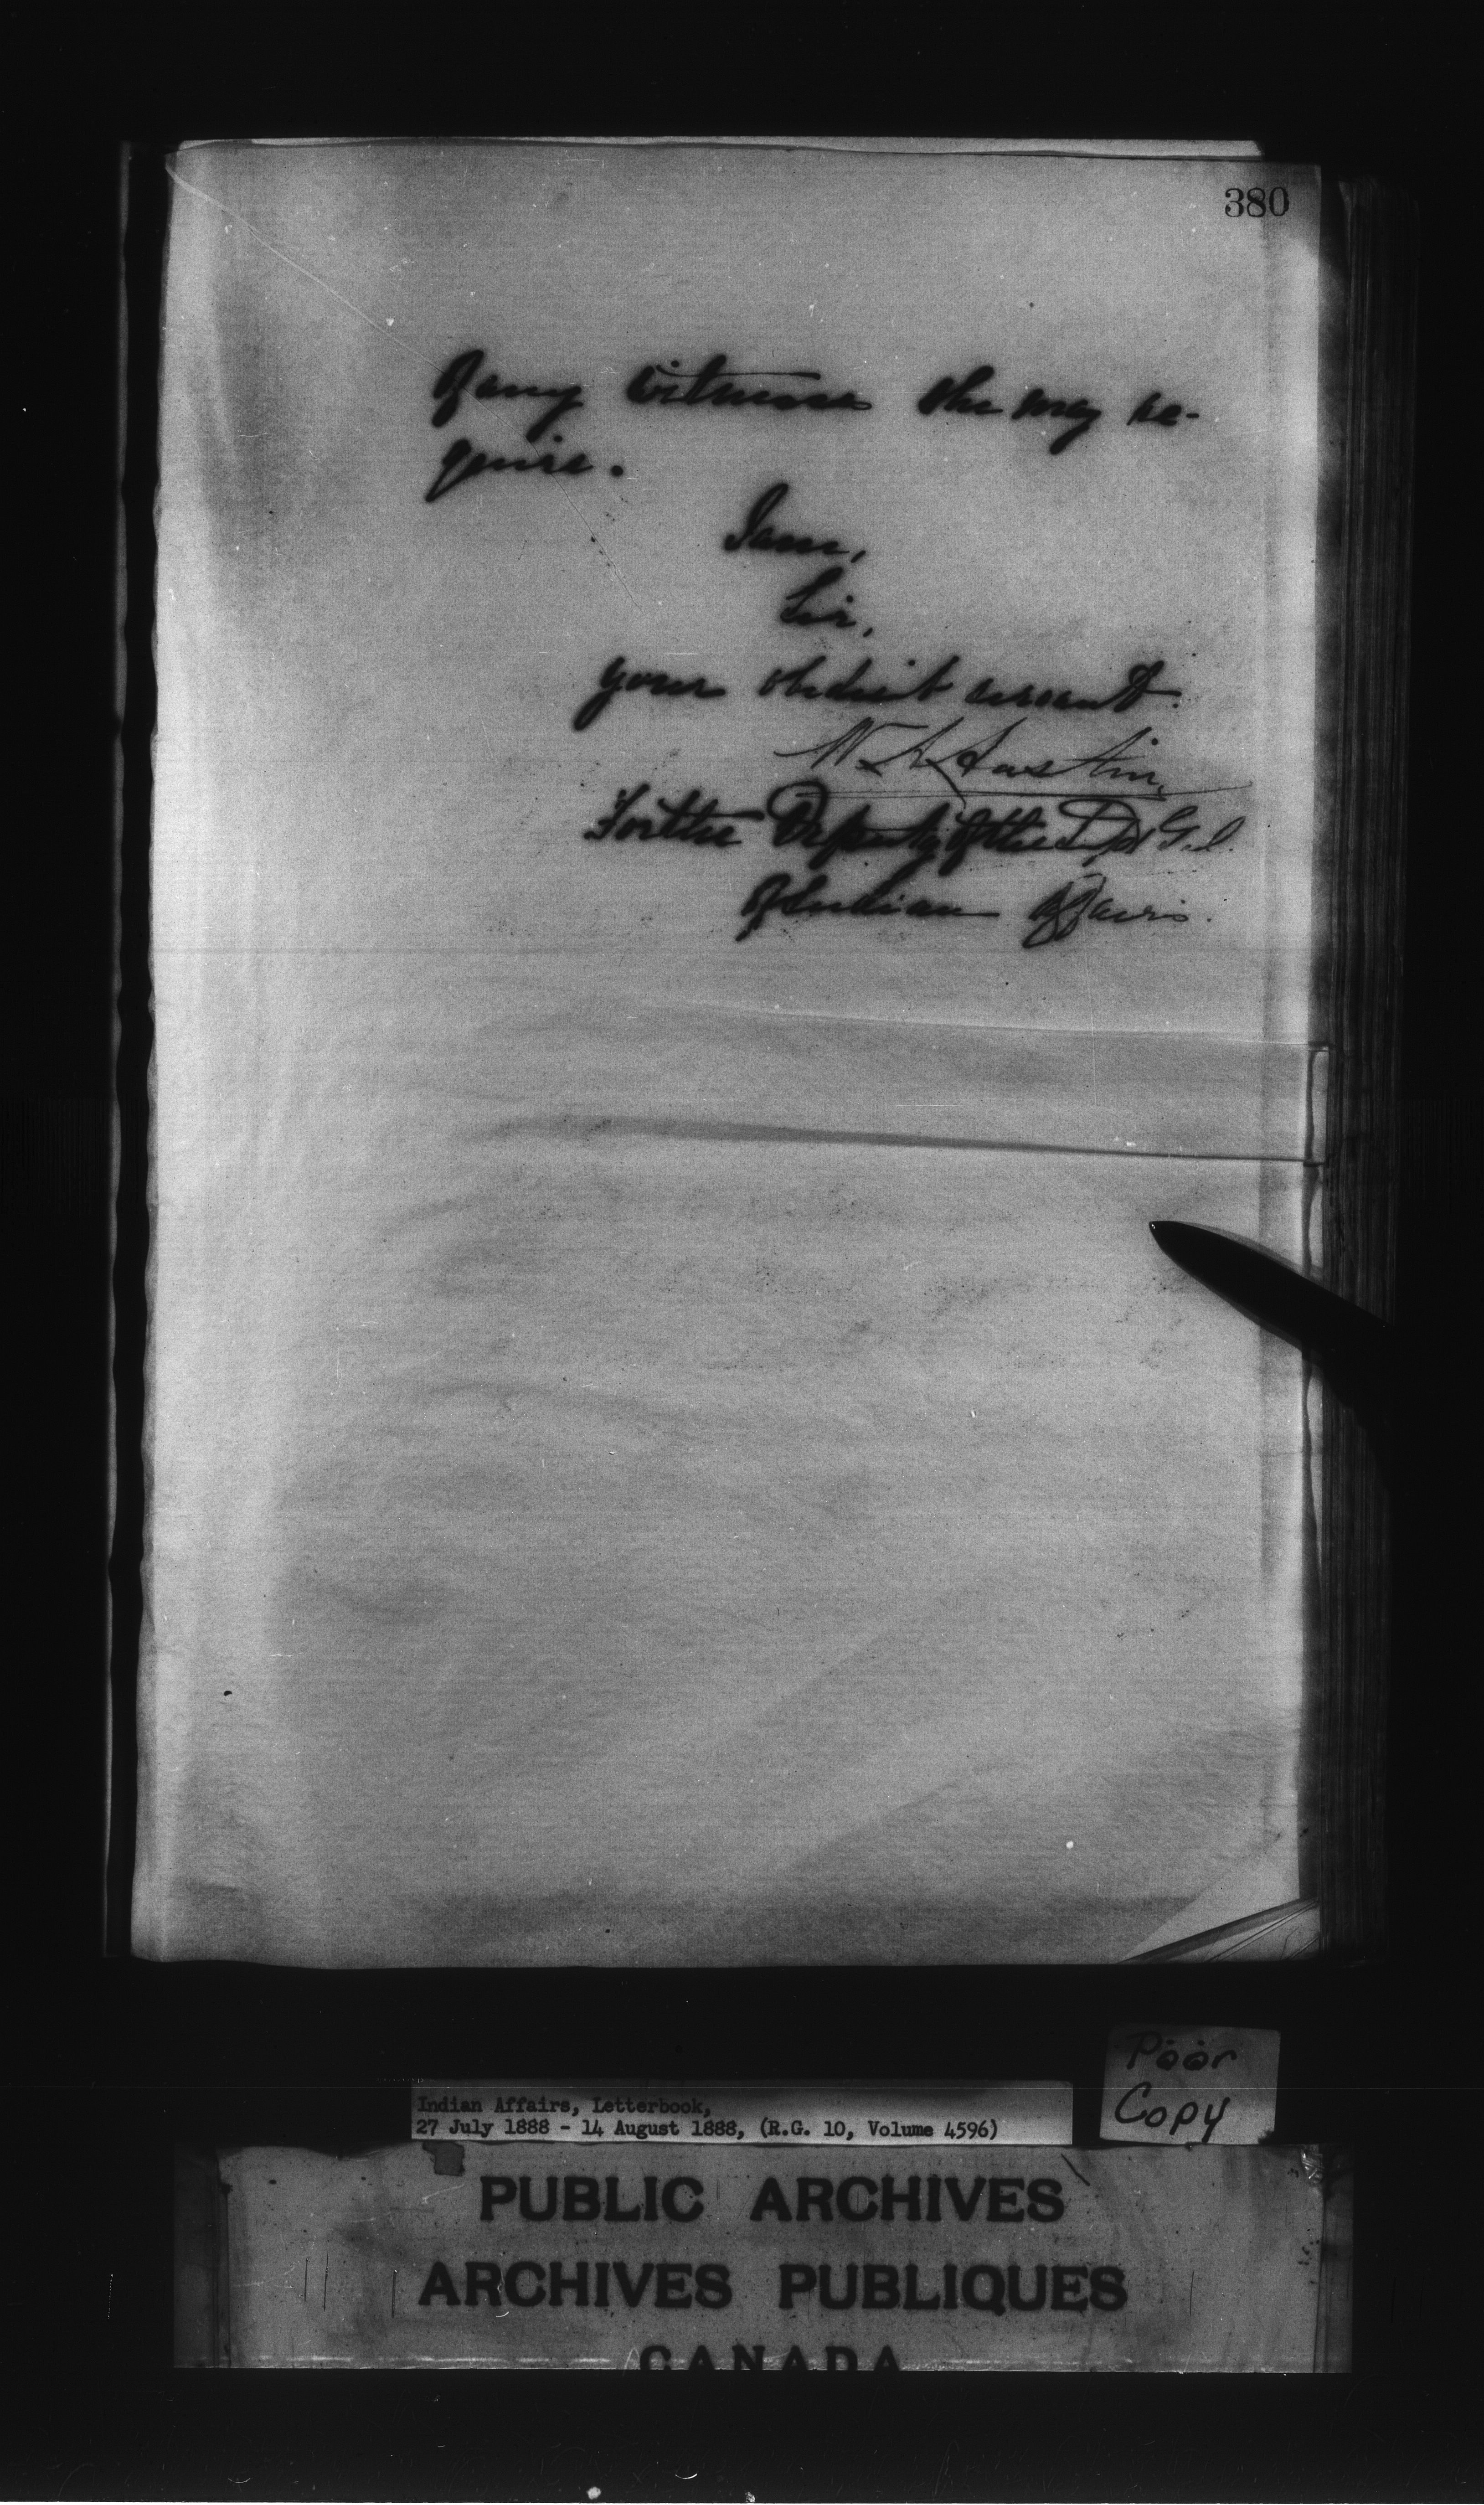 380
of any witnesses she may re-
quire.
I am,
Sir,
your obedient servant.
W. A. Austin
For the Deputy of the Supt Genl.
of Indian Affairs.
Poor
Copy
Indian Affairs, Letterbook,
27 July 1888 - 14 August 1888, (R.G. 10, Volume 4596)
PUBLIC ARCHIVES
ARCHIVES PUBLIQUES
CANADA